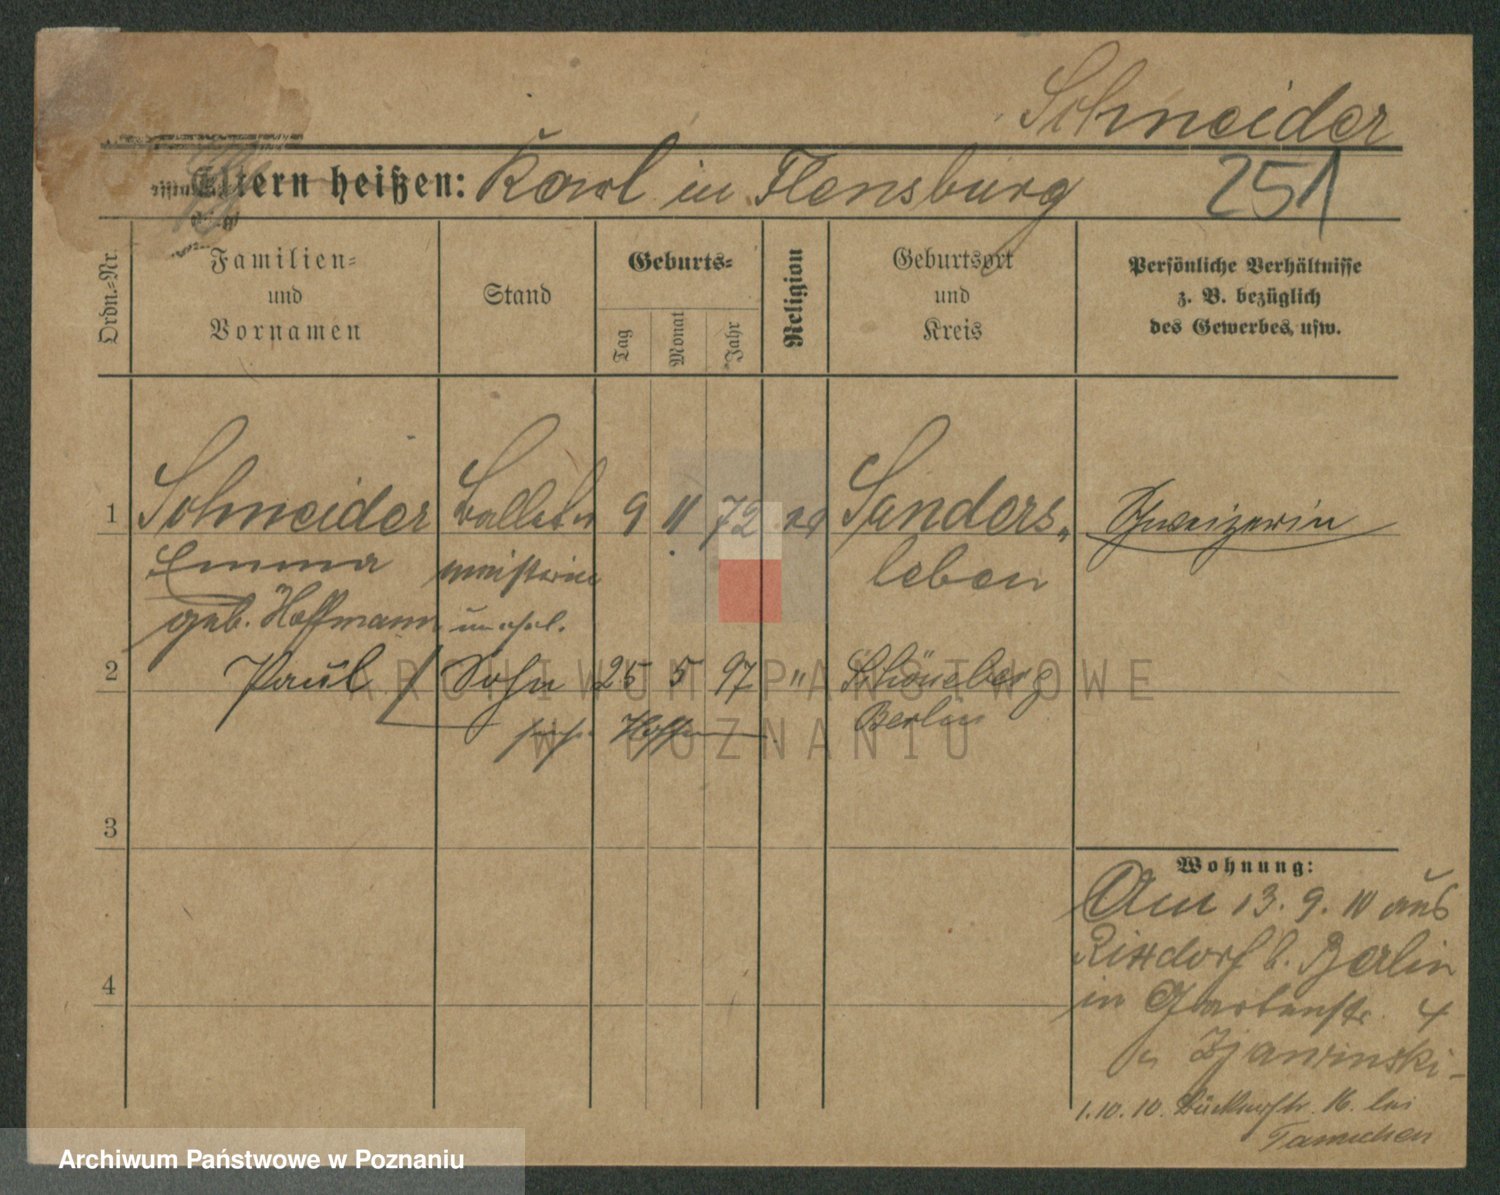 Schneider
Eltern heißen: Karl in Flensburg 251
Ordn.-Nr.
Familien-
und
Vornamen
Stand
Geburts-
Tag
Monat
Jahr
Religion
Geburtsort
und
Kreis
Persönliche Verhältnisse
z. B. bezüglich
des Gewerbes, usw.
1 Schneider Ballet 9 11 72 Sanders-
Emma meisterin leben
geb. Hoffmann unehel.
2 Paul Sohn 25 5 97 " Schöneberg
Berlin
3
4
Wohnung:
Am 13. 9. 10 aus
Rixdorf b. Berlin
in Gartenstr. 4
1.10.10. 16. bei
ARCHIWUM PAŃSTWOWE
W POZNANIU
Archiwum Państwowe w Poznaniu